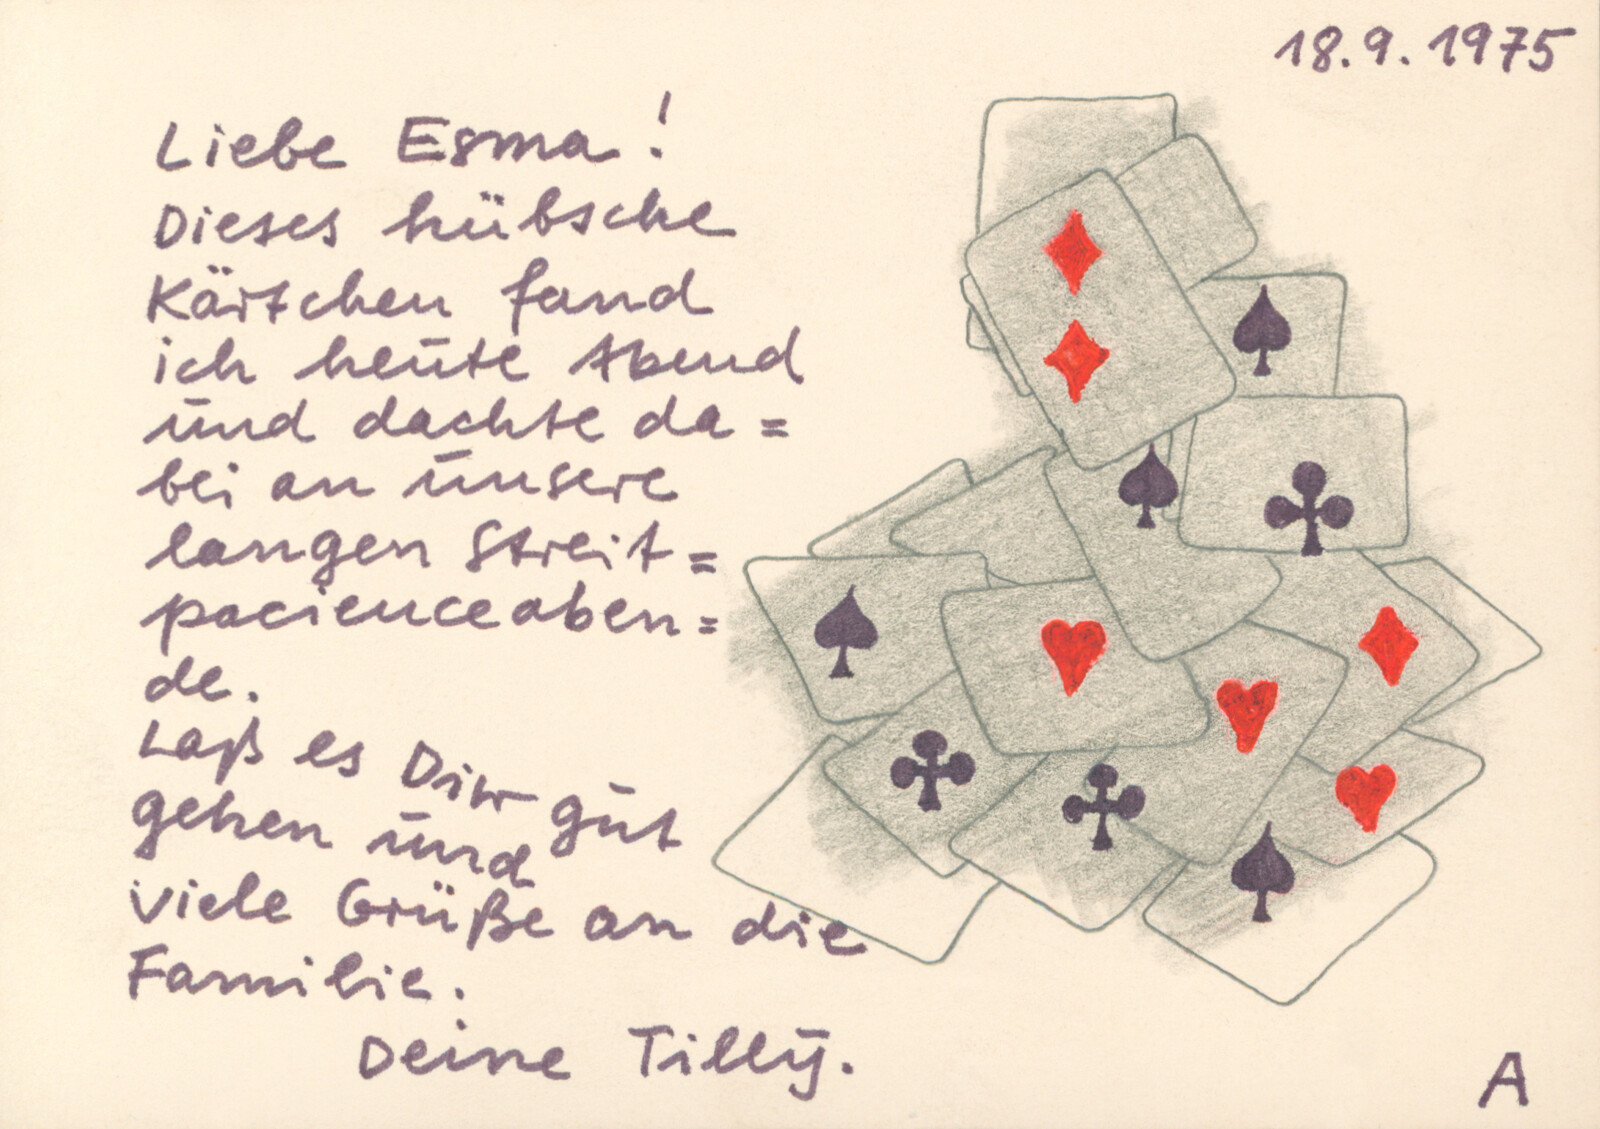 18.9.1975
Liebe Esma!
Dieses hübsche
Kärtchen fand
ich heute Abend
und dachte da=
bei an unsere
langen Streit=
pacienceaben=
de.
Laß es Dir gut
gehen und
viele Grüße an die
Familie.
Deine Tilly.
A